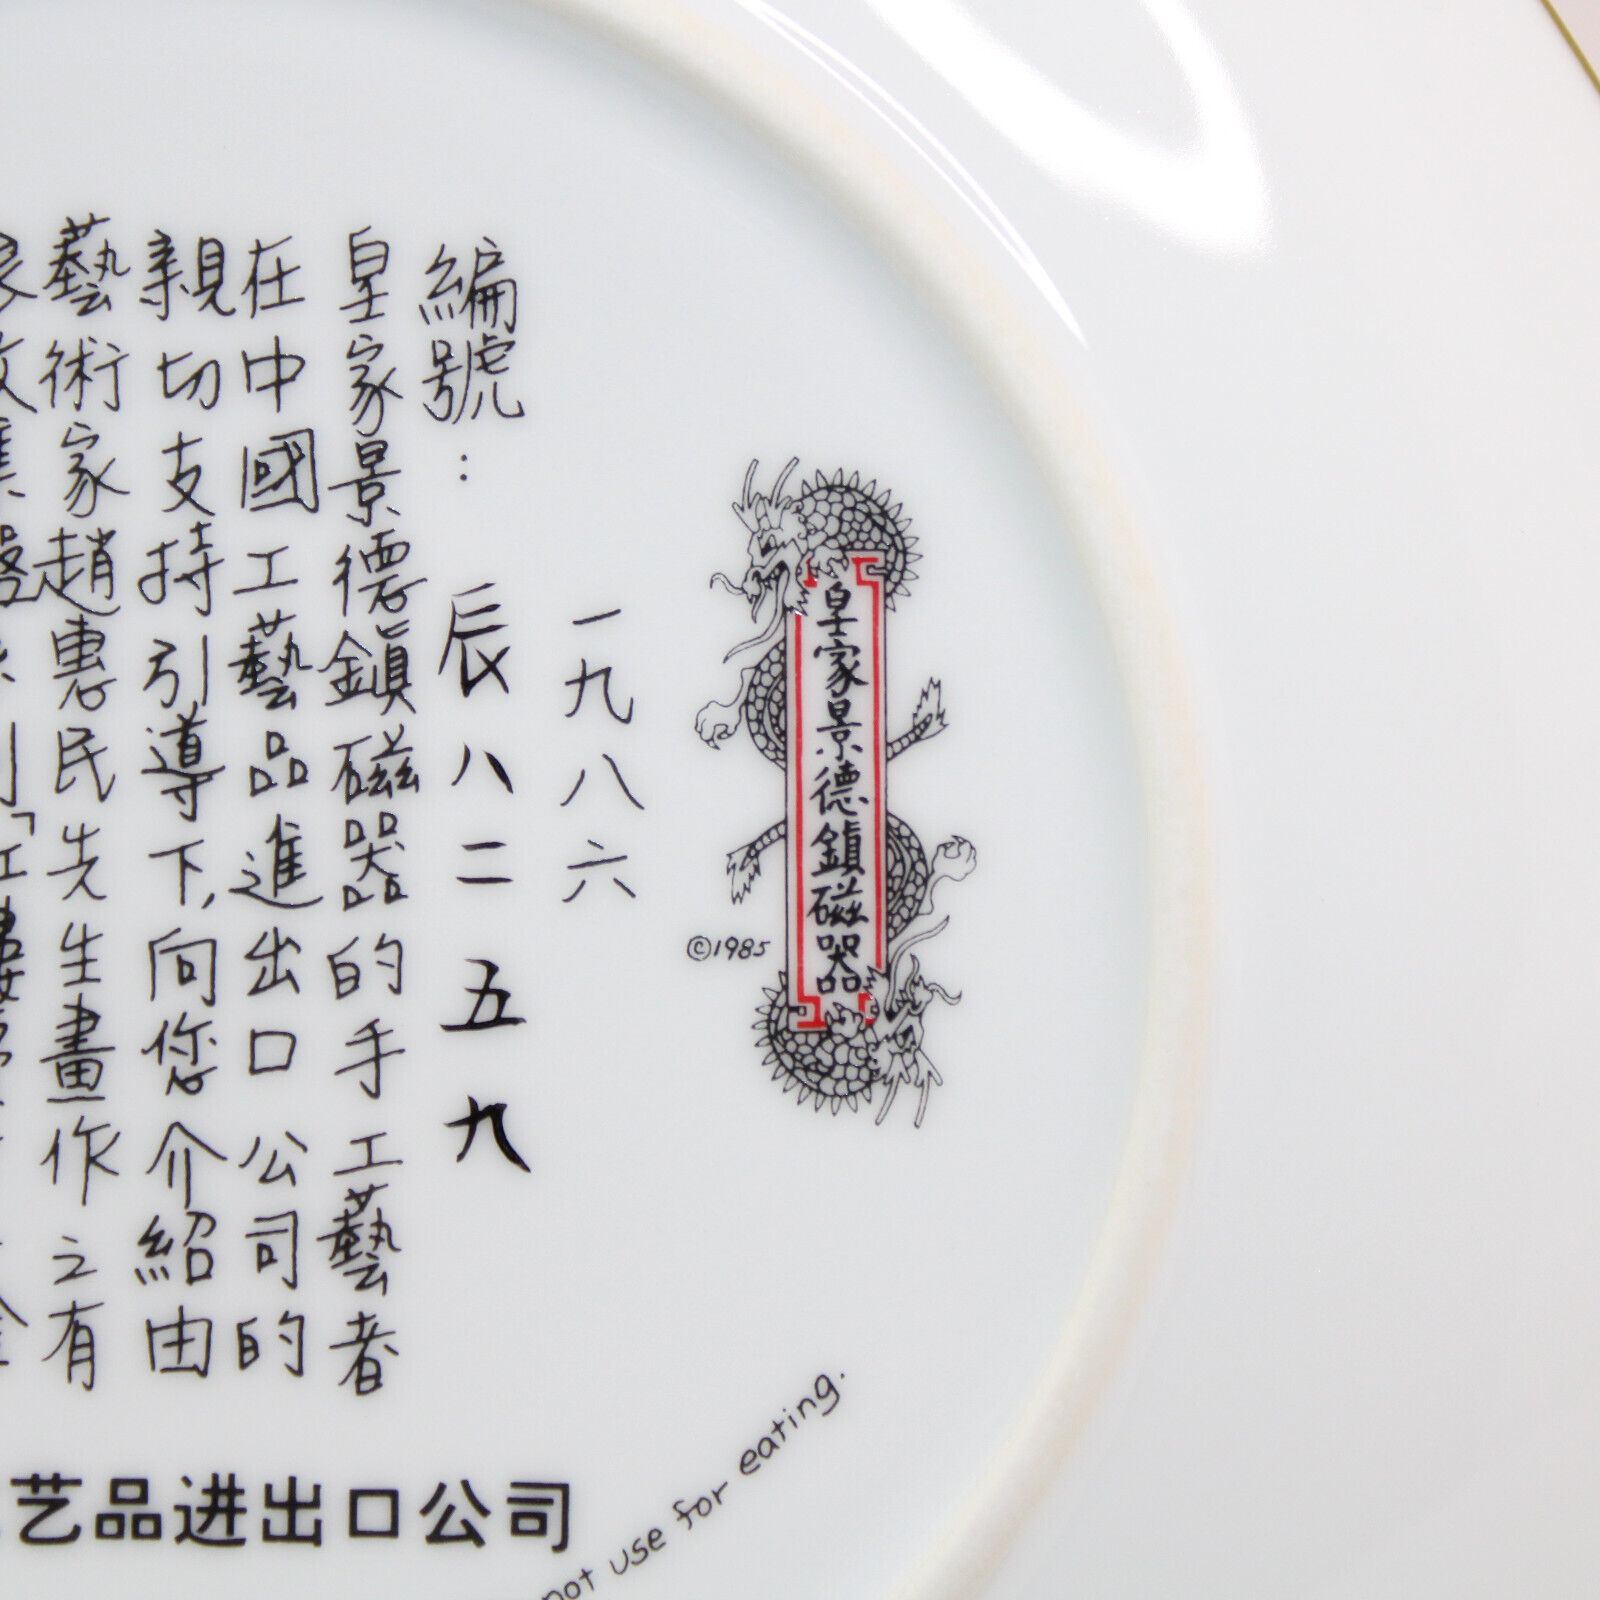 皇家景德鎮磁器
©1985
一九八六
編號： 辰八二五九
皇家景德鎮磁器的手工藝者
在中國工藝品進出口公司的
親切支持引導下,向您介紹由
藝術家趙惠民先生畫作之有
艺品进出口公司
not use for eating.